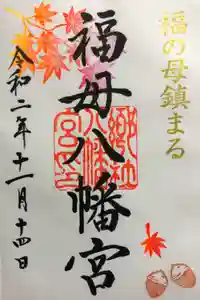 福の母鎮まる
福母八幡宮
郷社
八幡
宮印
令和二年十一月十四日